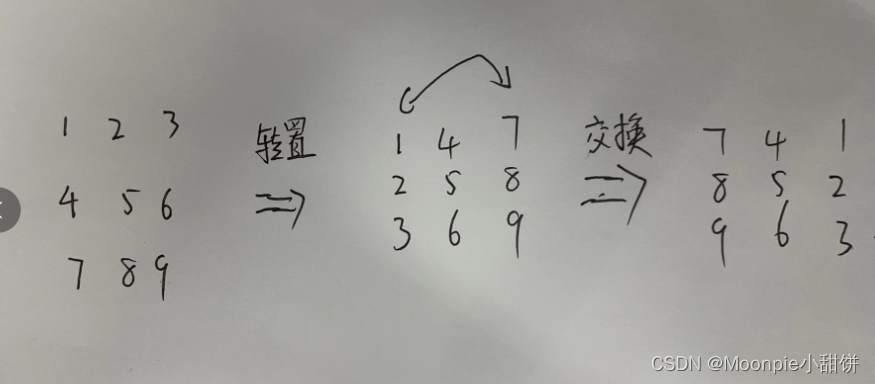 1 2 3
4 5 6
7 8 9
转置
1 4 7
2 5 8
3 6 9
交换
7 4 1
8 5 2
9 6 3
CSDN @Moonpie小甜饼